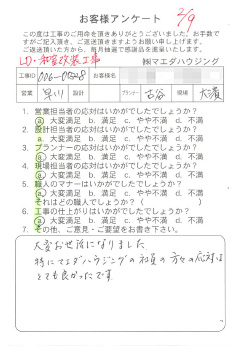 お客様アンケート 2/9
この度は工事のご用命を頂きありがとうございました。お手数で
すがご記入頂き、ご返送頂きますようお願い申し上げます。
ご返送頂いた方から、毎月抽選で感謝品を進呈いたします。
LD・和室改装工事 ㈱マエダハウジング
工事ID お客様名
営業 早川 設計 プランナー 古谷 現場 大濱
1. 営業担当者の応対はいかがでしたでしょうか?
a 大変満足 b. 満足 c. やや不満 d. 不満
2. 設計担当者の応対はいかがでしたでしょうか?
a. 大変満足 b. 満足 c. やや不満 d. 不満
3. プランナーの応対はいかがでしたでしょうか?
a 大変満足 b. 満足 c. やや不満 d. 不満
4. 現場担当者の応対はいかがでしたでしょうか?
a 大変満足 b. 満足 c. やや不満 d. 不満
5. 職人のマナーはいかがでしたでしょうか?
a 大変満足 b. 満足 c. やや不満 d. 不満
それはどの職人でしょうか?( )
6. 工事の仕上がりはいかがでしたでしょうか?
a 大変満足 b. 満足 c. やや不満 d. 不満
7. その他、ご意見・ご要望をお書き下さい。
大変お世話になりました。
特にマエダハウジングの社員の方々の応対は
とても良かったです。